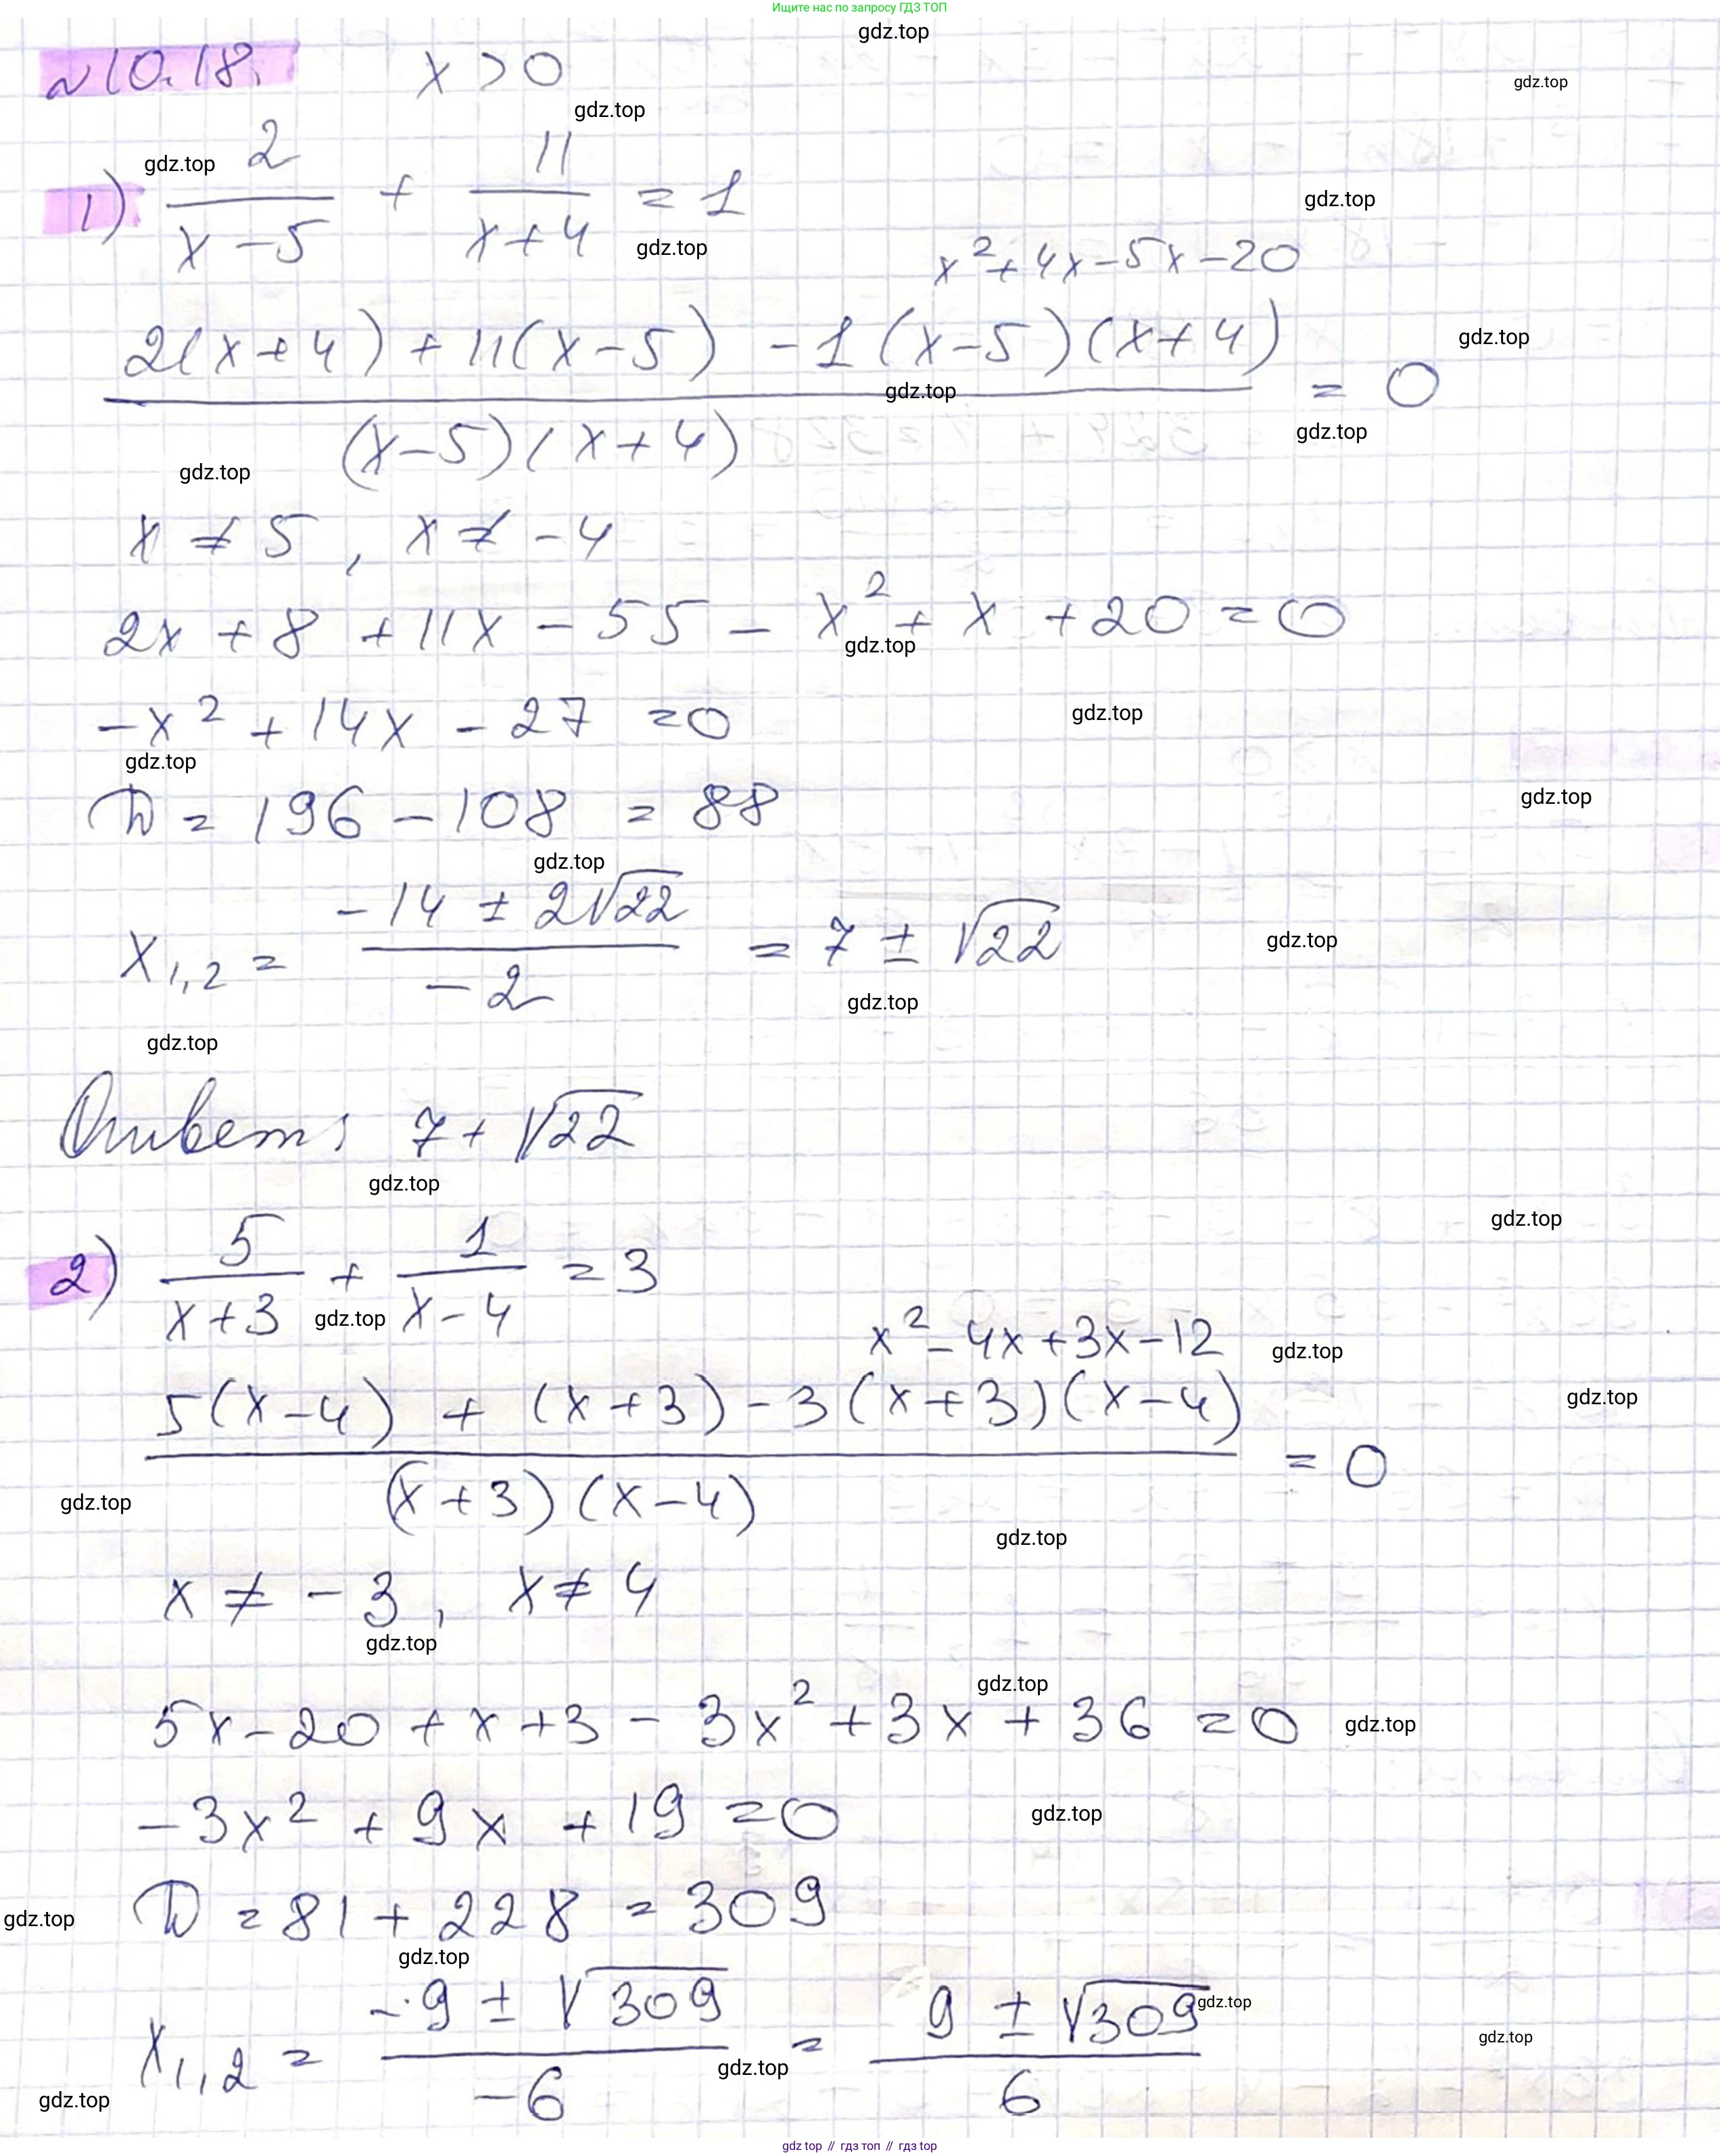 Ищите нас по запросу ГДЗ ТОП
№10.18. x > 0
1) 2/(x-5) + 11/(x+4) = 1
x² + 4x - 5x - 20
(2(x+4) + 11(x-5) - 1(x-5)(x+4)) / ((x-5)(x+4)) = 0
x ≠ 5, x ≠ -4
2x + 8 + 11x - 55 - x² + x + 20 = 0
-x² + 14x - 27 = 0
D = 196 - 108 = 88
x1,2 = (-14 ± 2√22)/(-2) = 7 ± √22
Ответ: 7 + √22
2) 5/(x+3) + 1/(x-4) = 3
x² - 4x + 3x - 12
(5(x-4) + (x+3) - 3(x+3)(x-4)) / ((x+3)(x-4)) = 0
x ≠ -3, x ≠ 4
5x - 20 + x + 3 - 3x² + 3x + 36 = 0
-3x² + 9x + 19 = 0
D = 81 + 228 = 309
x1,2 = (-9 ± √309)/(-6) = (9 ± √309)/6
gdz top // гдз топ // gdz top